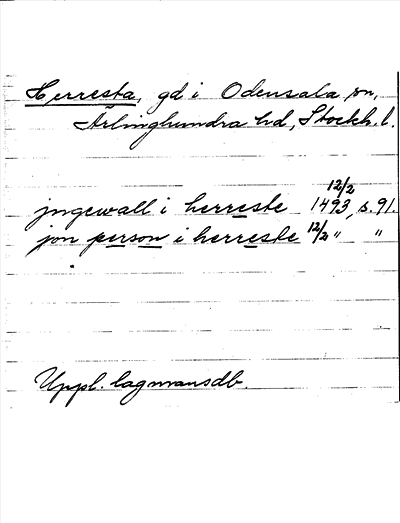 Herresta, gd i Odensala sn,
Ärlinghundra hd, Stockh. l.
jngewall i herreste 12/2 1493, s. 91.
jon person i herreste 12/2 " "
Uppl. lagmansdb.